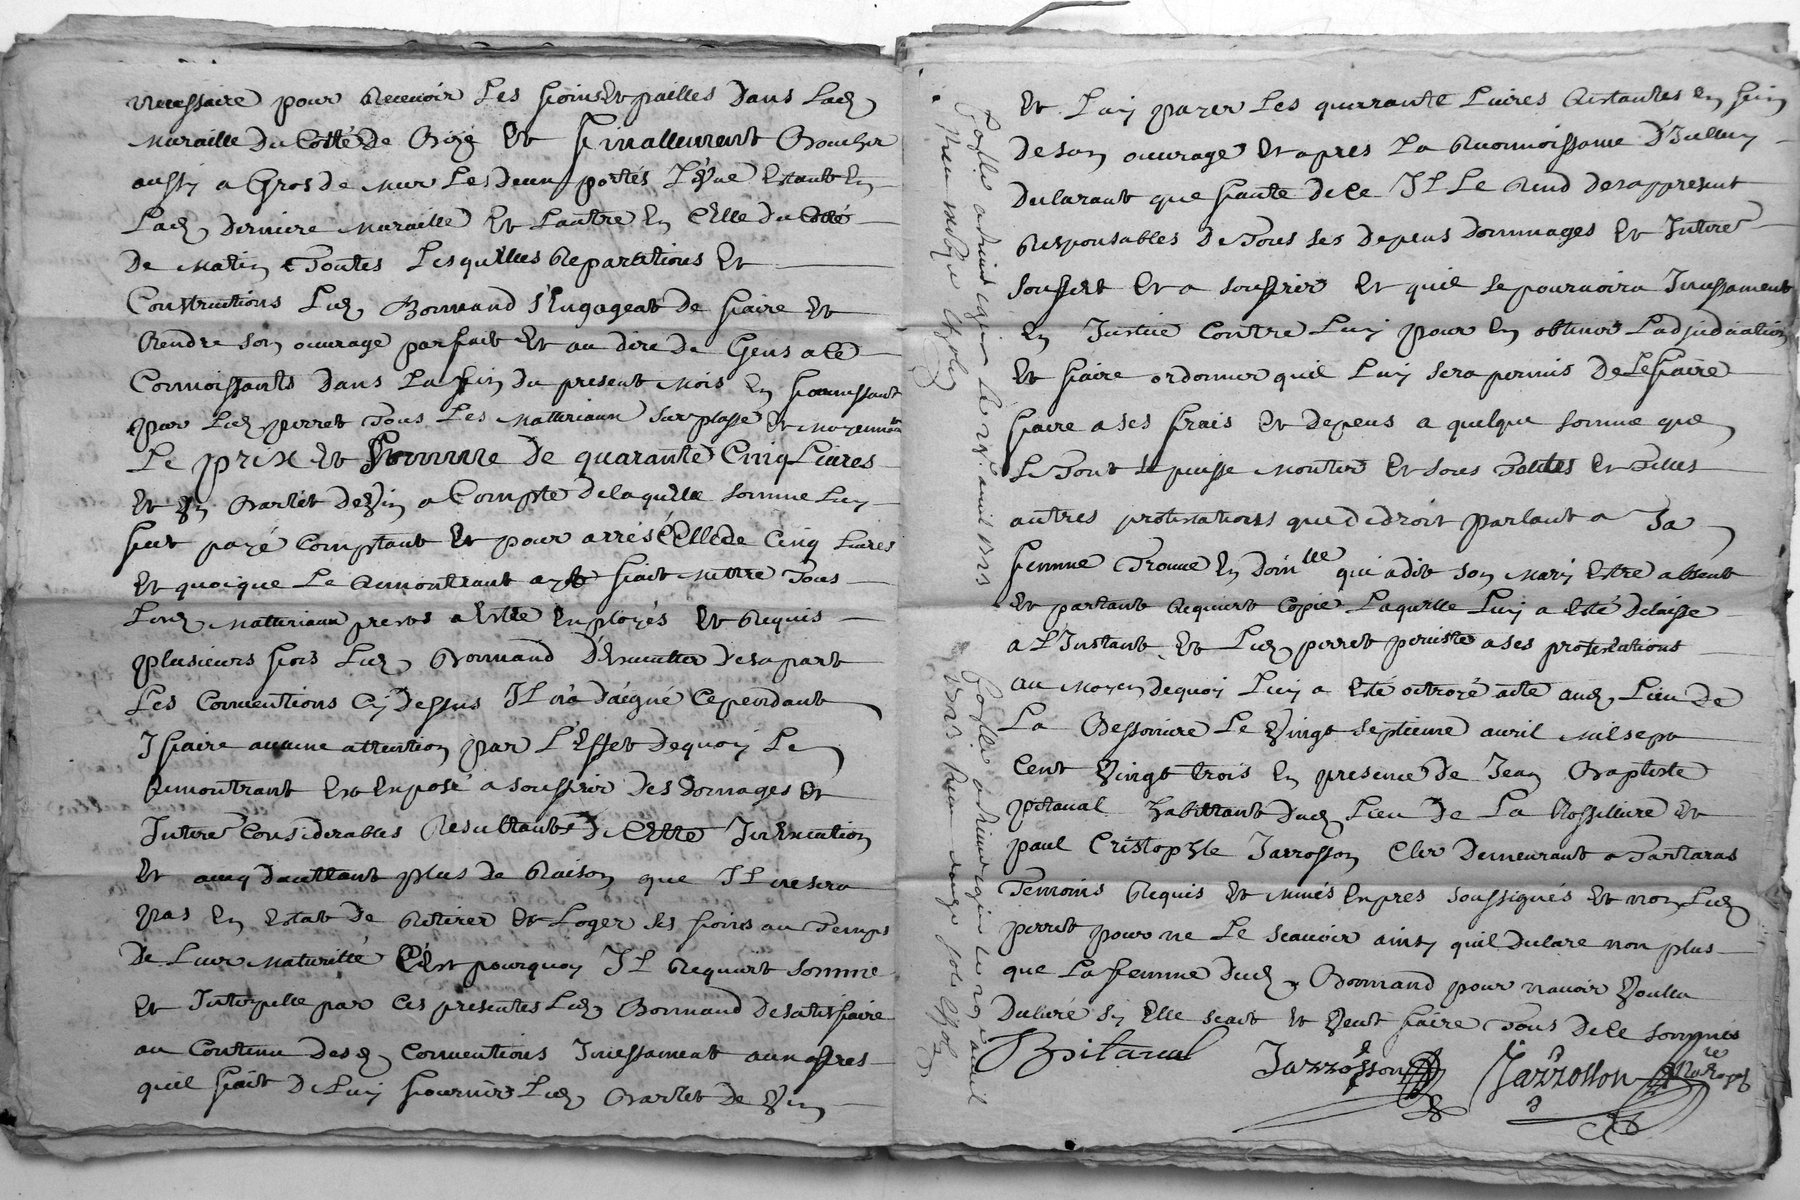 necessaire pour Recevoir Les foins et pailles Dans Lad
Muraille Du Costé de Bize Et finallement Boucher
aussy a Gros de mur Les Deux portes L'une Estant En
Lad derniere Muraille Et Lautre En Celle du Costé
De Matin Toutes Lesquelles Reparations Et
Constructions Led Bonnand s'Engageat de faire Et
Rendre son ouvrage parfait Et au dire de Gens a ce
Connoissants Dans La fin du present Mois En fournissant
par Led perret Tous Les Matteriaux sur plasse Et Moyennant
Le prix Et Somme De quarante Cinq Livres
Et Un Barlet de Vin a Compte de laquelle somme Luy
fut payé Comptant Et pour arres Celle de Cinq Livres
Et quoique Le Remontrant aye fait Mettre Tous
Matteriaux prests a Estre Employés Et Requis
plusieurs fois Led Bonnand D'Executter De sa part
Les Conventions Cy Dessus IL n'a daigné Cependant
y faire aucune attention par L'Effet Dequoy Le
Remontrant Est Exposé a souffrir Des Domages Et
Interé Considerables Resultants de Cette Inexecution
Et aveq Dauttant plus De Raison que IL ne sera
pas En Estat De Retirer Et Loger ses foins au Temps
De Leur Maturitté C'est pourquoy IL Requiert somme
Et Interpelle par Ces presentes Led Bonnand De satisfaire
au Contenu Desd Conventions Incessament aux offres
quil fait De Luy fournir Led Barlet de Vin
Et Luy payer Les quarante Livres Restantes En fin
De son ouvrage Et apres La Reconnoissance D'Icelluy
Declarant que faute de Ce IL Le Rend Des a present
Responsables De Tous ses Depens Dommages Et Interé
souffert Et a souffrir Et quil se pourvoira Incessament
En Justice Contre Luy pour En obtenir Ladjudication
Et faire ordonner quil Luy sera permis De Le faire
faire a ses frais Et Depens a quelque somme que
Le Tout se puisse Monter Et sous Toutes Et Telles
autres protestations que De droit parlant a sa
femme Trouvé En Domlle qui a dit son Mary Estre absent
Et partant Requiert Copie Laquelle Luy a Esté Delaisse
a L'Instant Et Led perret persiste a ses protestations
au Moyen Dequoy Luy a Esté octroyé acte aud Lieu De
La Bessonniere Le Vingt septieme avril Mil sept
Cent Vingt trois En presence De Jean Baptiste
pitaval habittant Dud Lieu De La Rossilliere Et
paul Cristophle Jarrosson Cler Demeurant a Tartaras
Temoins Requis Et soussignés Et non Led
perret pour ne Le scavoir ainsy quil Declare non plus
que La femme Dud Bonnand pour n'avoir Voullu
Declaré sy Elle scait Et Veut faire Tous De Ce sommes
JBpitaval Jarrosson Jarrosson Nore Royal
Controllé a le 27e avril 1723